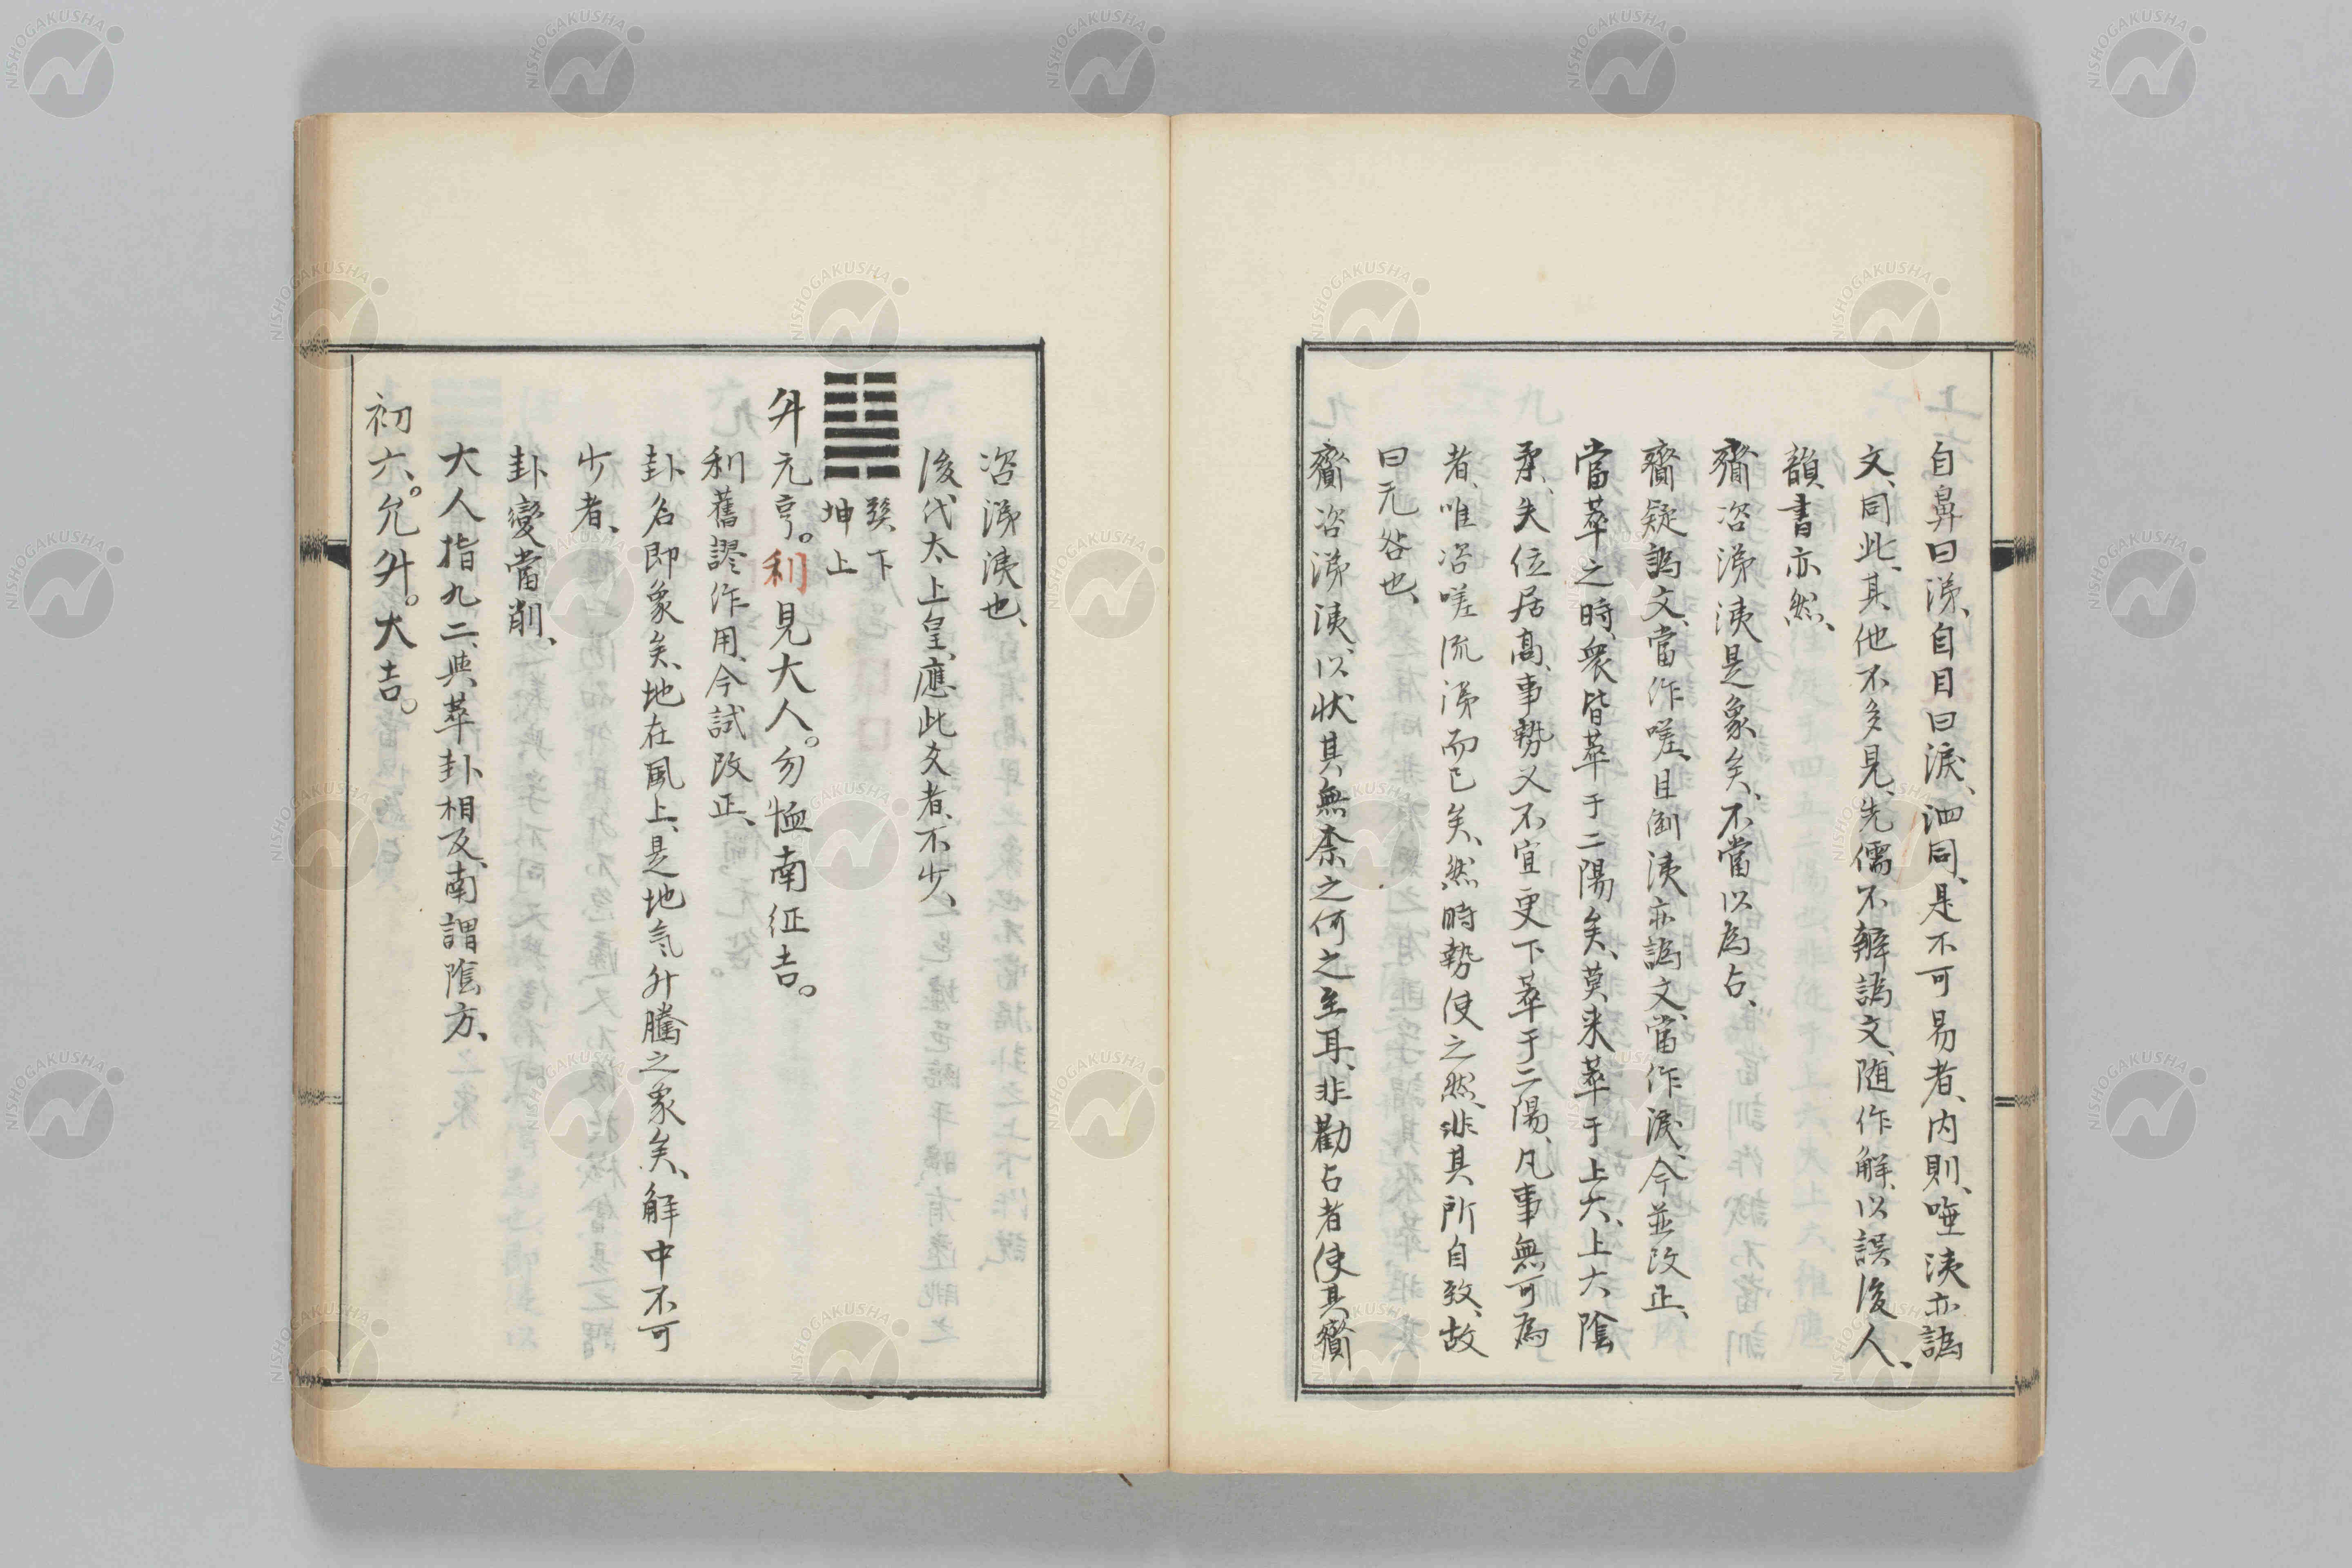 自鼻曰涕、自目曰淚、泗同、是不可易者、內則、唾洟亦譌
文、同此、其他不多見、先儒不辨譌文、随作解、以誤後人、
韻書亦然、
齎咨涕洟是象矣、不當以為占、
齎疑譌文、當作嗟、且倒、洟亦譌文、當作淚、今並改正、
當萃之時、衆皆萃于二陽矣、莫来萃于上六、上六陰
柔、失位居高、事勢又不宜更下萃于二陽、凡事無可為
者、唯咨嗟流涕而已矣、然時勢使之然、非其所自致、故
曰无咎也、
齎咨涕洟、以状其無柰之何之至耳、非勸占者使其齎
咨涕洟也、
後代太上皇、應此爻者、不少、
巽下
坤上
升元亨。利見大人。勿恤南征吉。
利舊謬作用、今試改正、
卦名即象矣、地在風上、是地气升騰之象矣、解中不可
少者、
卦變當削、
大人指九二、與萃卦相反、南謂陰方、
初六。允升。大吉。
NISHOGAKUSHA